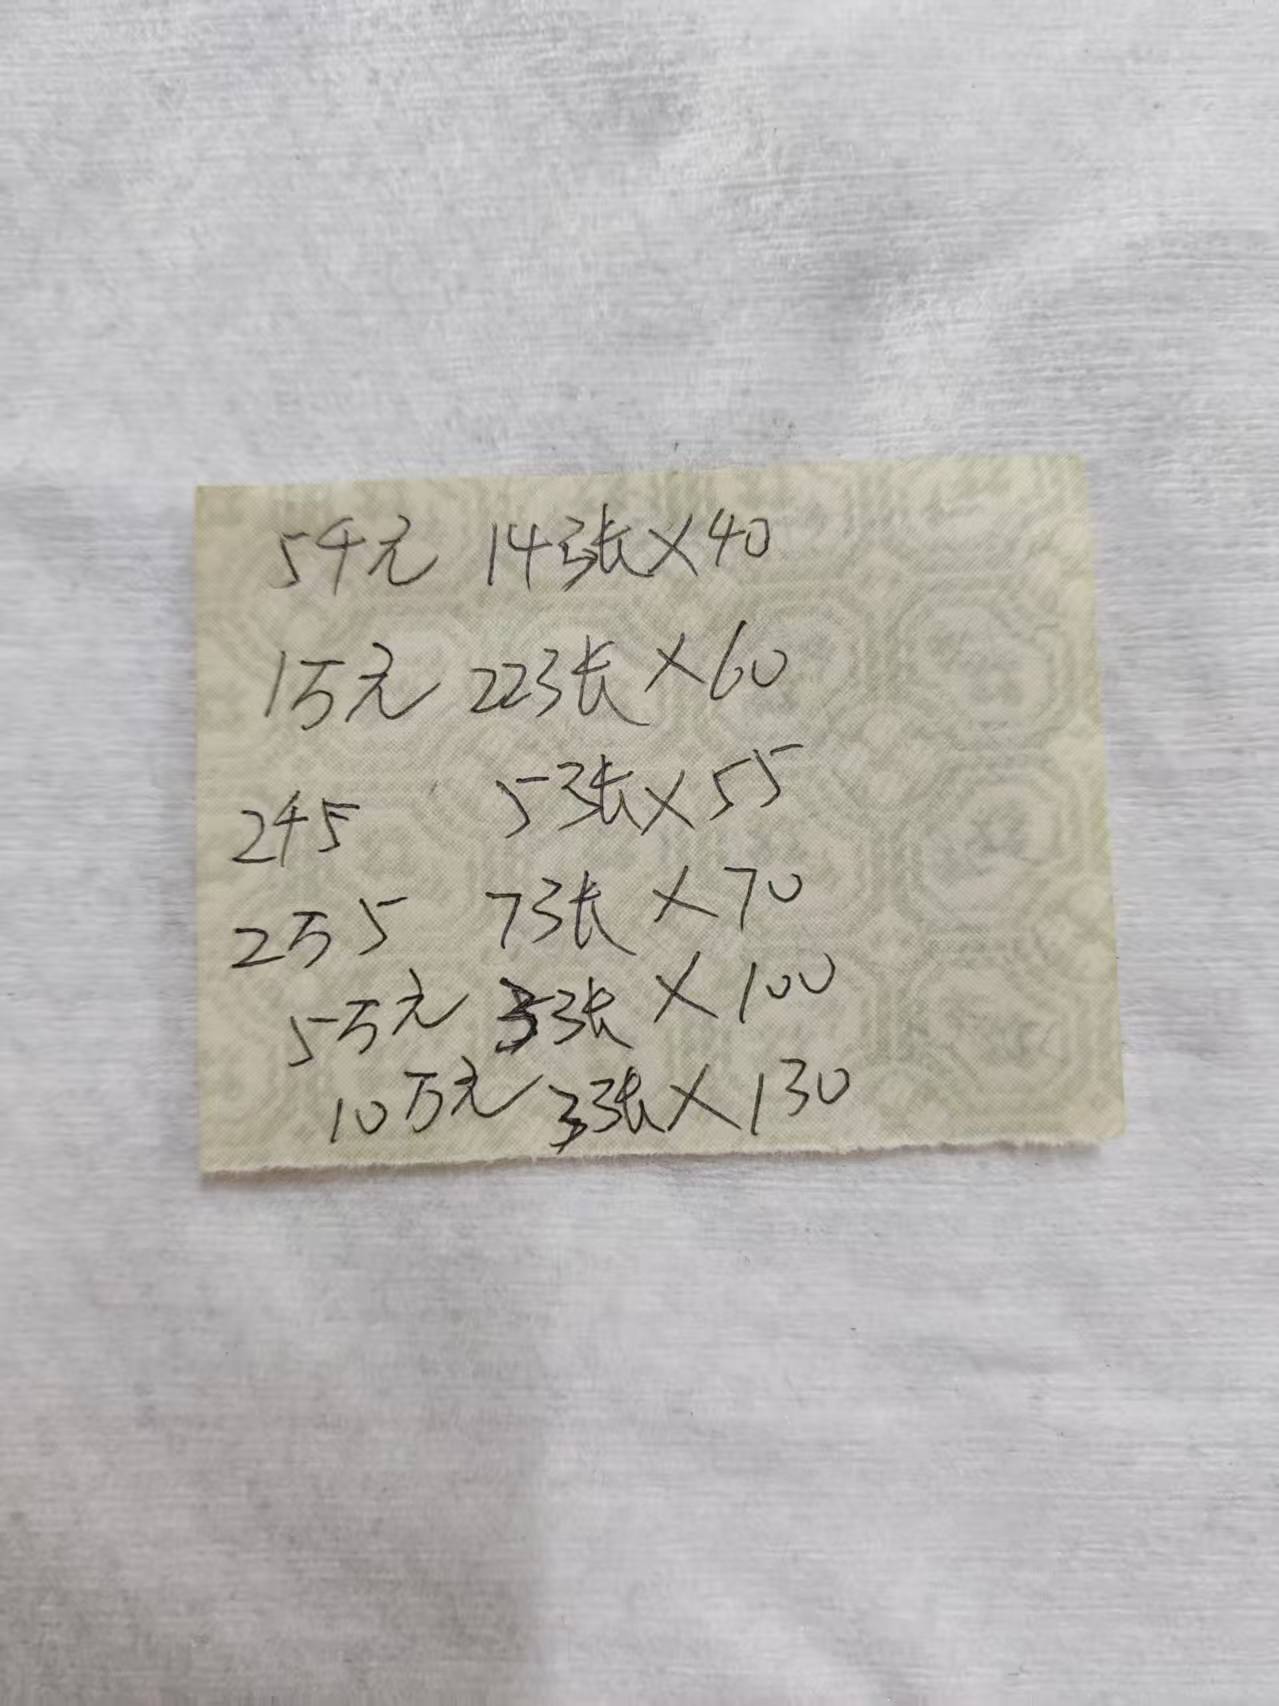 5千元 14张×40
1万元 22张×60
2千5 5张×55
2万5 7张×70
5万元 3张×100
10万元 3张×130